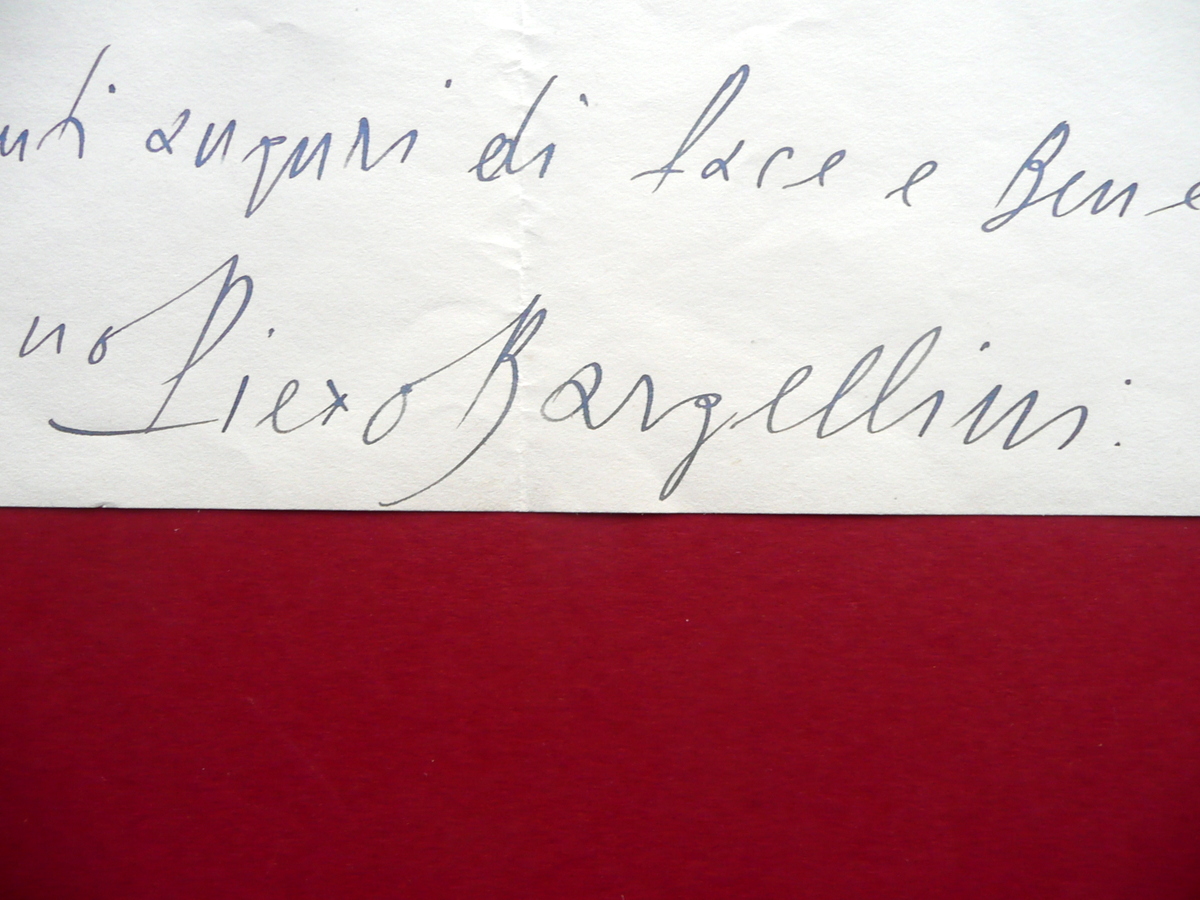 nti auguri di Pace e Bene
no Piero Bargellini.